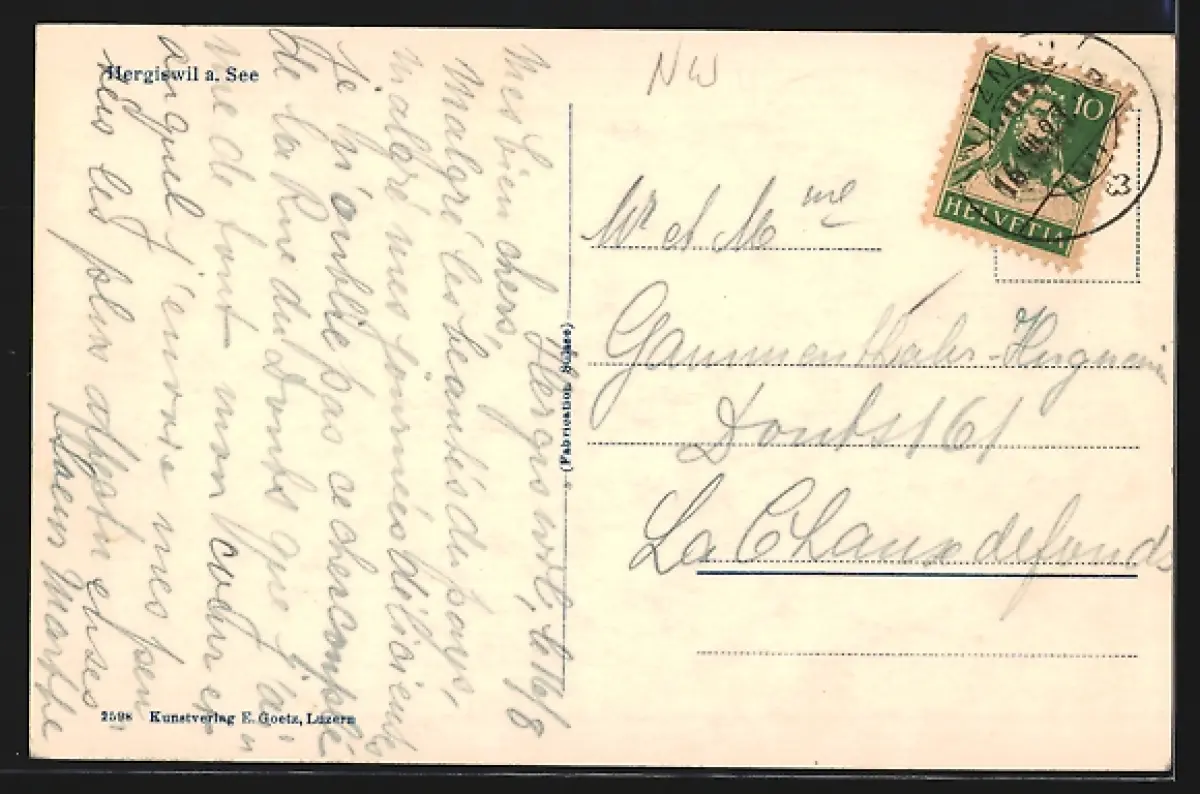 Hergiswil a. See
NW
10
HELVETIA
Hergiswil, le 16/8
Mes bien chers,
Malgré les beautés du pays,
malgré mes journées délicieuses
je n'oublie pas ce cher couple
de la Rue du Doubs que j'ai
me de tout mon coeur et
auquel j'envoie mes pen
sées les plus affectueuses
Marthe
(Fabrication Suisse)
Mr et Mme
Gammenthaler-Huguenin
Doubs 161
La Chaux de fonds
2598 Kunstverlag E. Goetz, Luzern